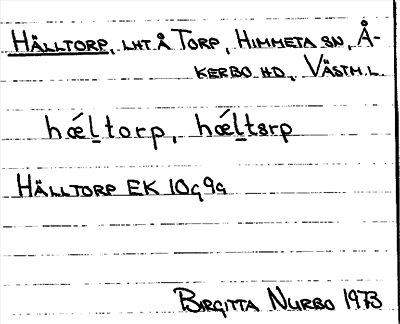 HÄLLTORP, LHT. Å TORP, HIMMETA SN, Å-
KERBO HD., VÄSTM.L.
hǽḻtorp, hǽḻtɜrp
HÄLLTORP EK 10g9g
BIRGITTA NURBO 1973